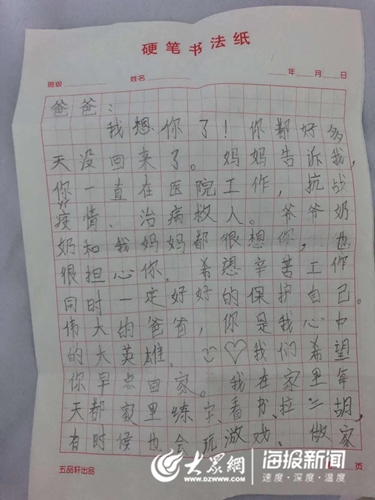 硬笔书法纸
班级 姓名 年 月 日
爸爸:
我想你了!你都好多
天没回来了。妈妈告诉我,
你一直在医院工作,抗战
疫情、治病救人。爷爷奶
奶和我妈妈都很想你,也
很担心你。希想辛苦工作
同时一定好好的保护自己。
伟大的爸爸,你是我心中
的大英雄。我们希望
你早点回家。我在家里每
天都家里练字、看书、拉二胡,
有时候也会玩游戏、做家
五品轩出品
页
大众网
WWW.DZWWW.COM
海报新闻
速度·深度·温度